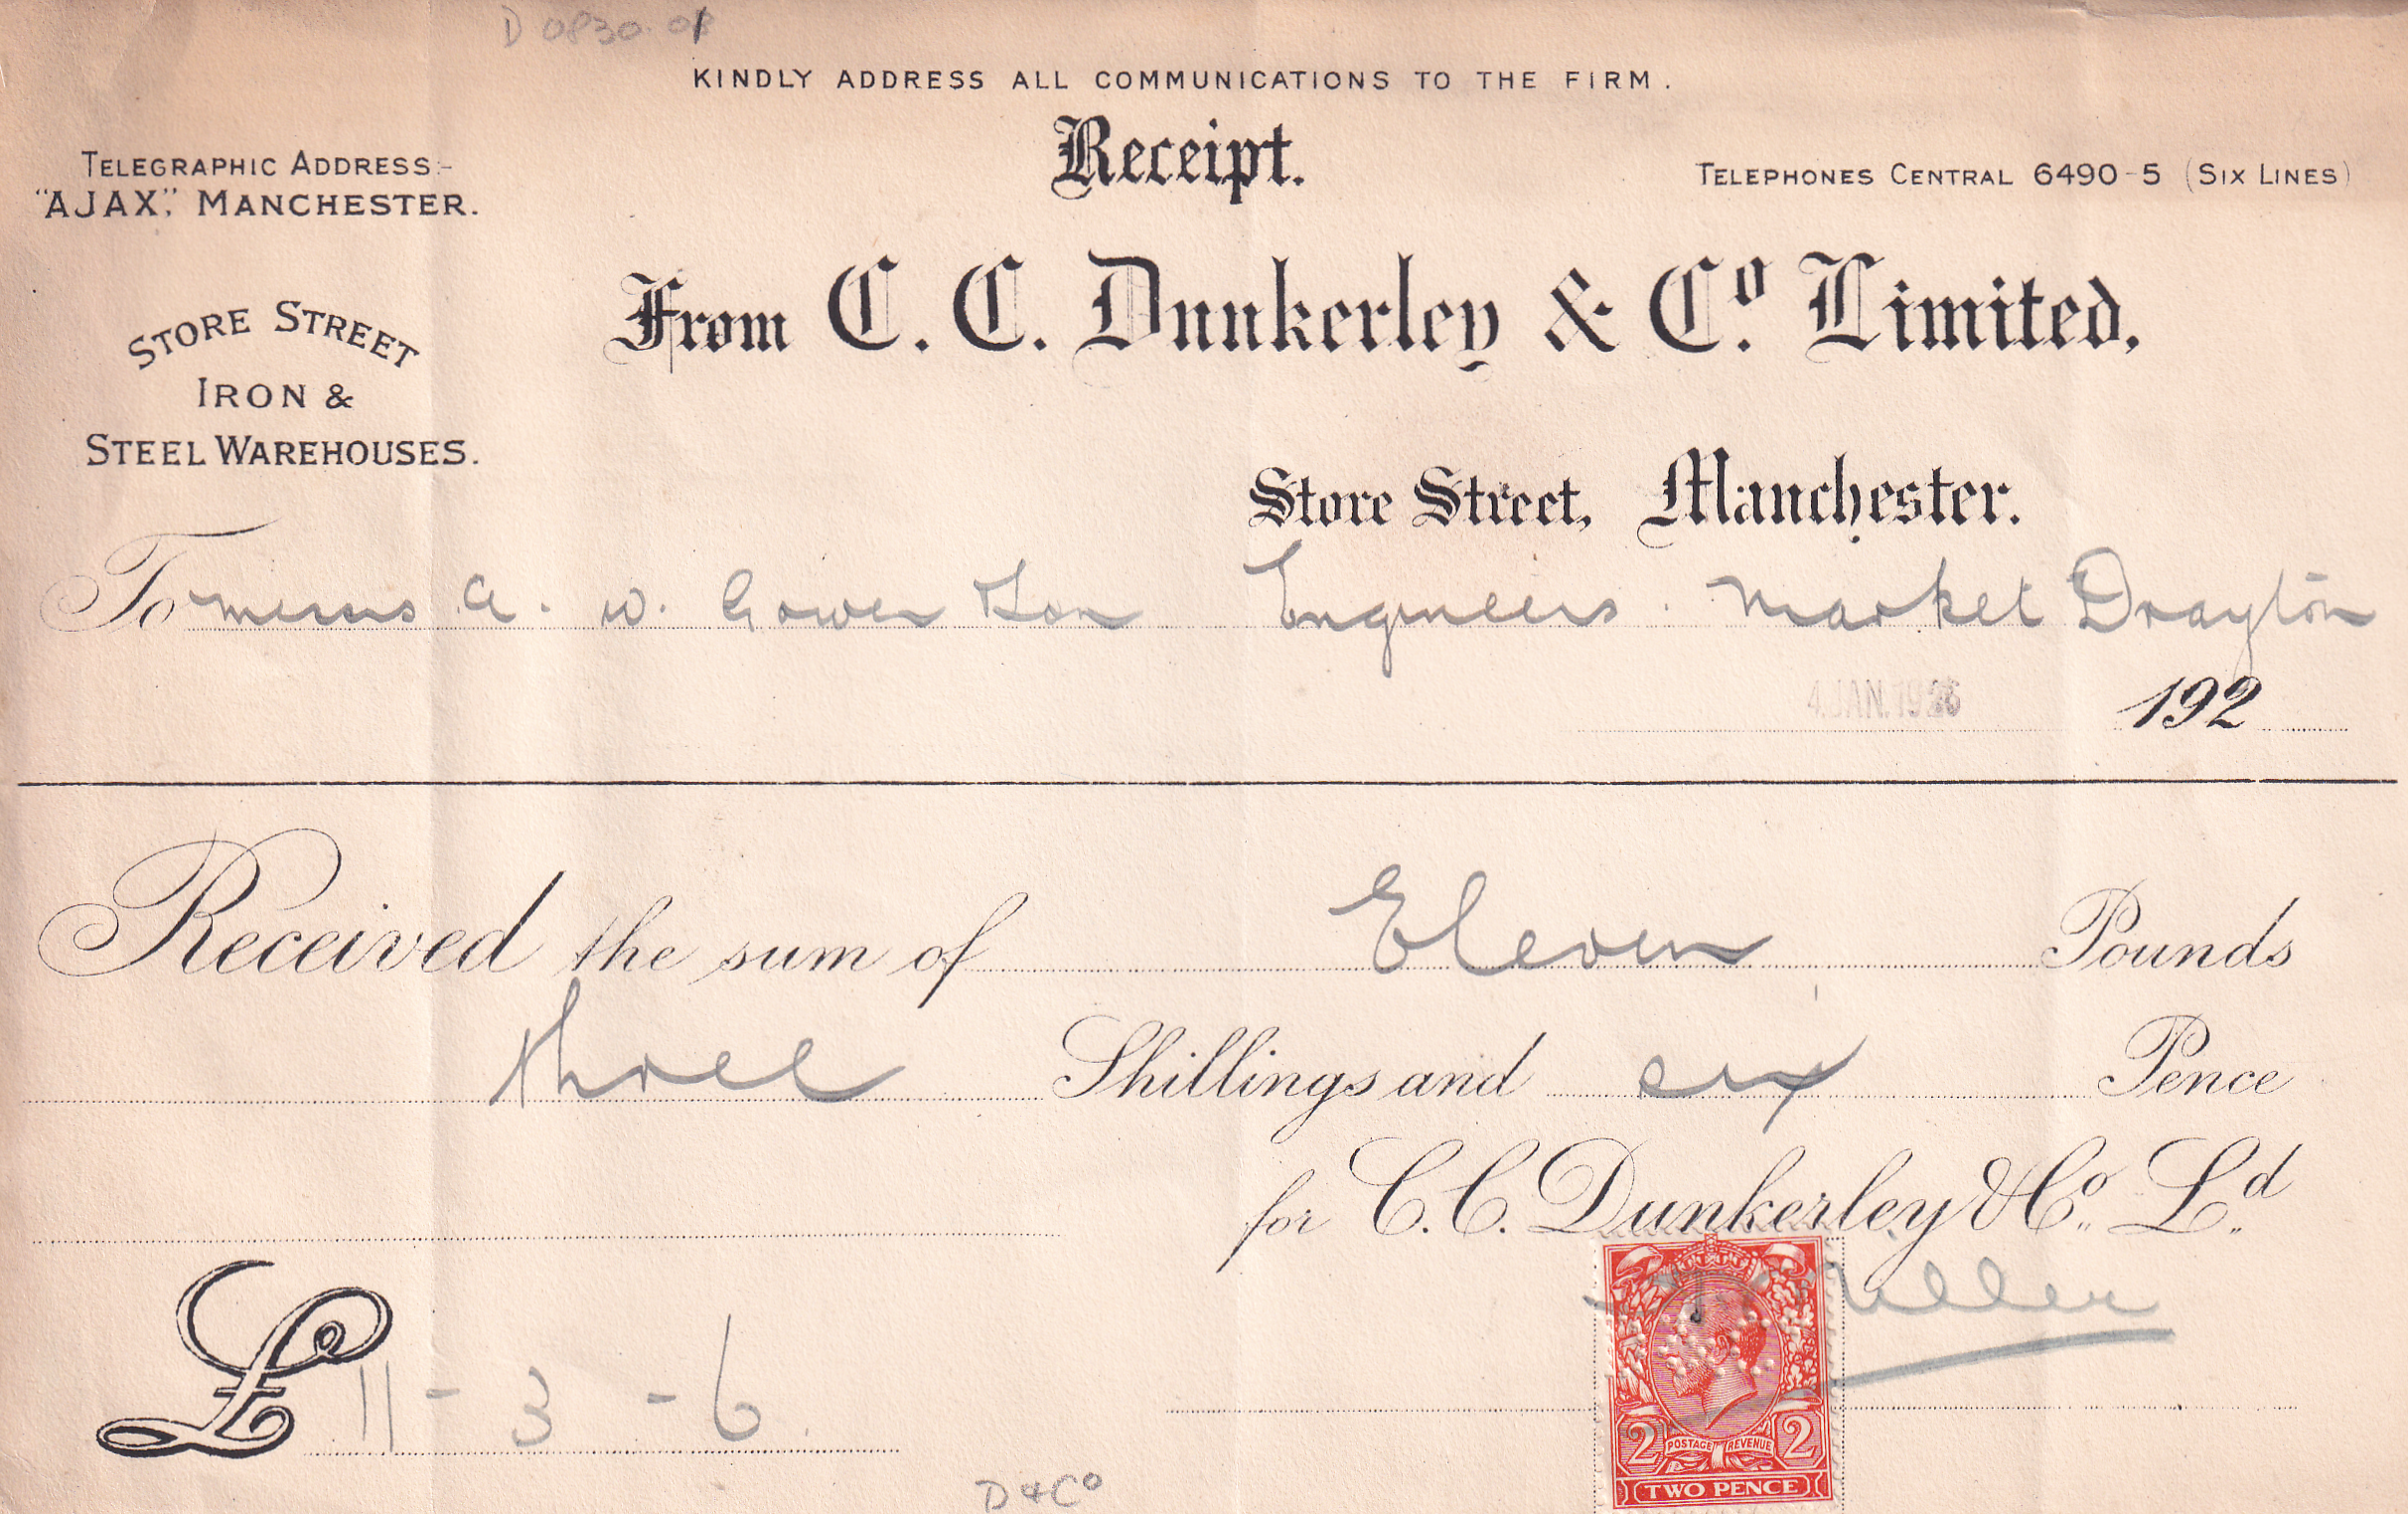 D 0830.01
KINDLY ADDRESS ALL COMMUNICATIONS TO THE FIRM.
Receipt.
TELEGRAPHIC ADDRESS:-
"AJAX," MANCHESTER.
TELEPHONES CENTRAL 6490-5 (SIX LINES)
From C. C. Dunkerley & Co. Limited,
STORE STREET
IRON &
STEEL WAREHOUSES.
Store Street, Manchester.
To Messrs A. W. Gower Son Engineers. Market Drayton
4 JAN. 1926 192
Received the sum of Eleven Pounds
three Shillings and six Pence
for C. C. Dunkerley & Co. Ld.
£ 11 - 3 - 6
POSTAGE REVENUE
2 2
TWO PENCE
D & Co